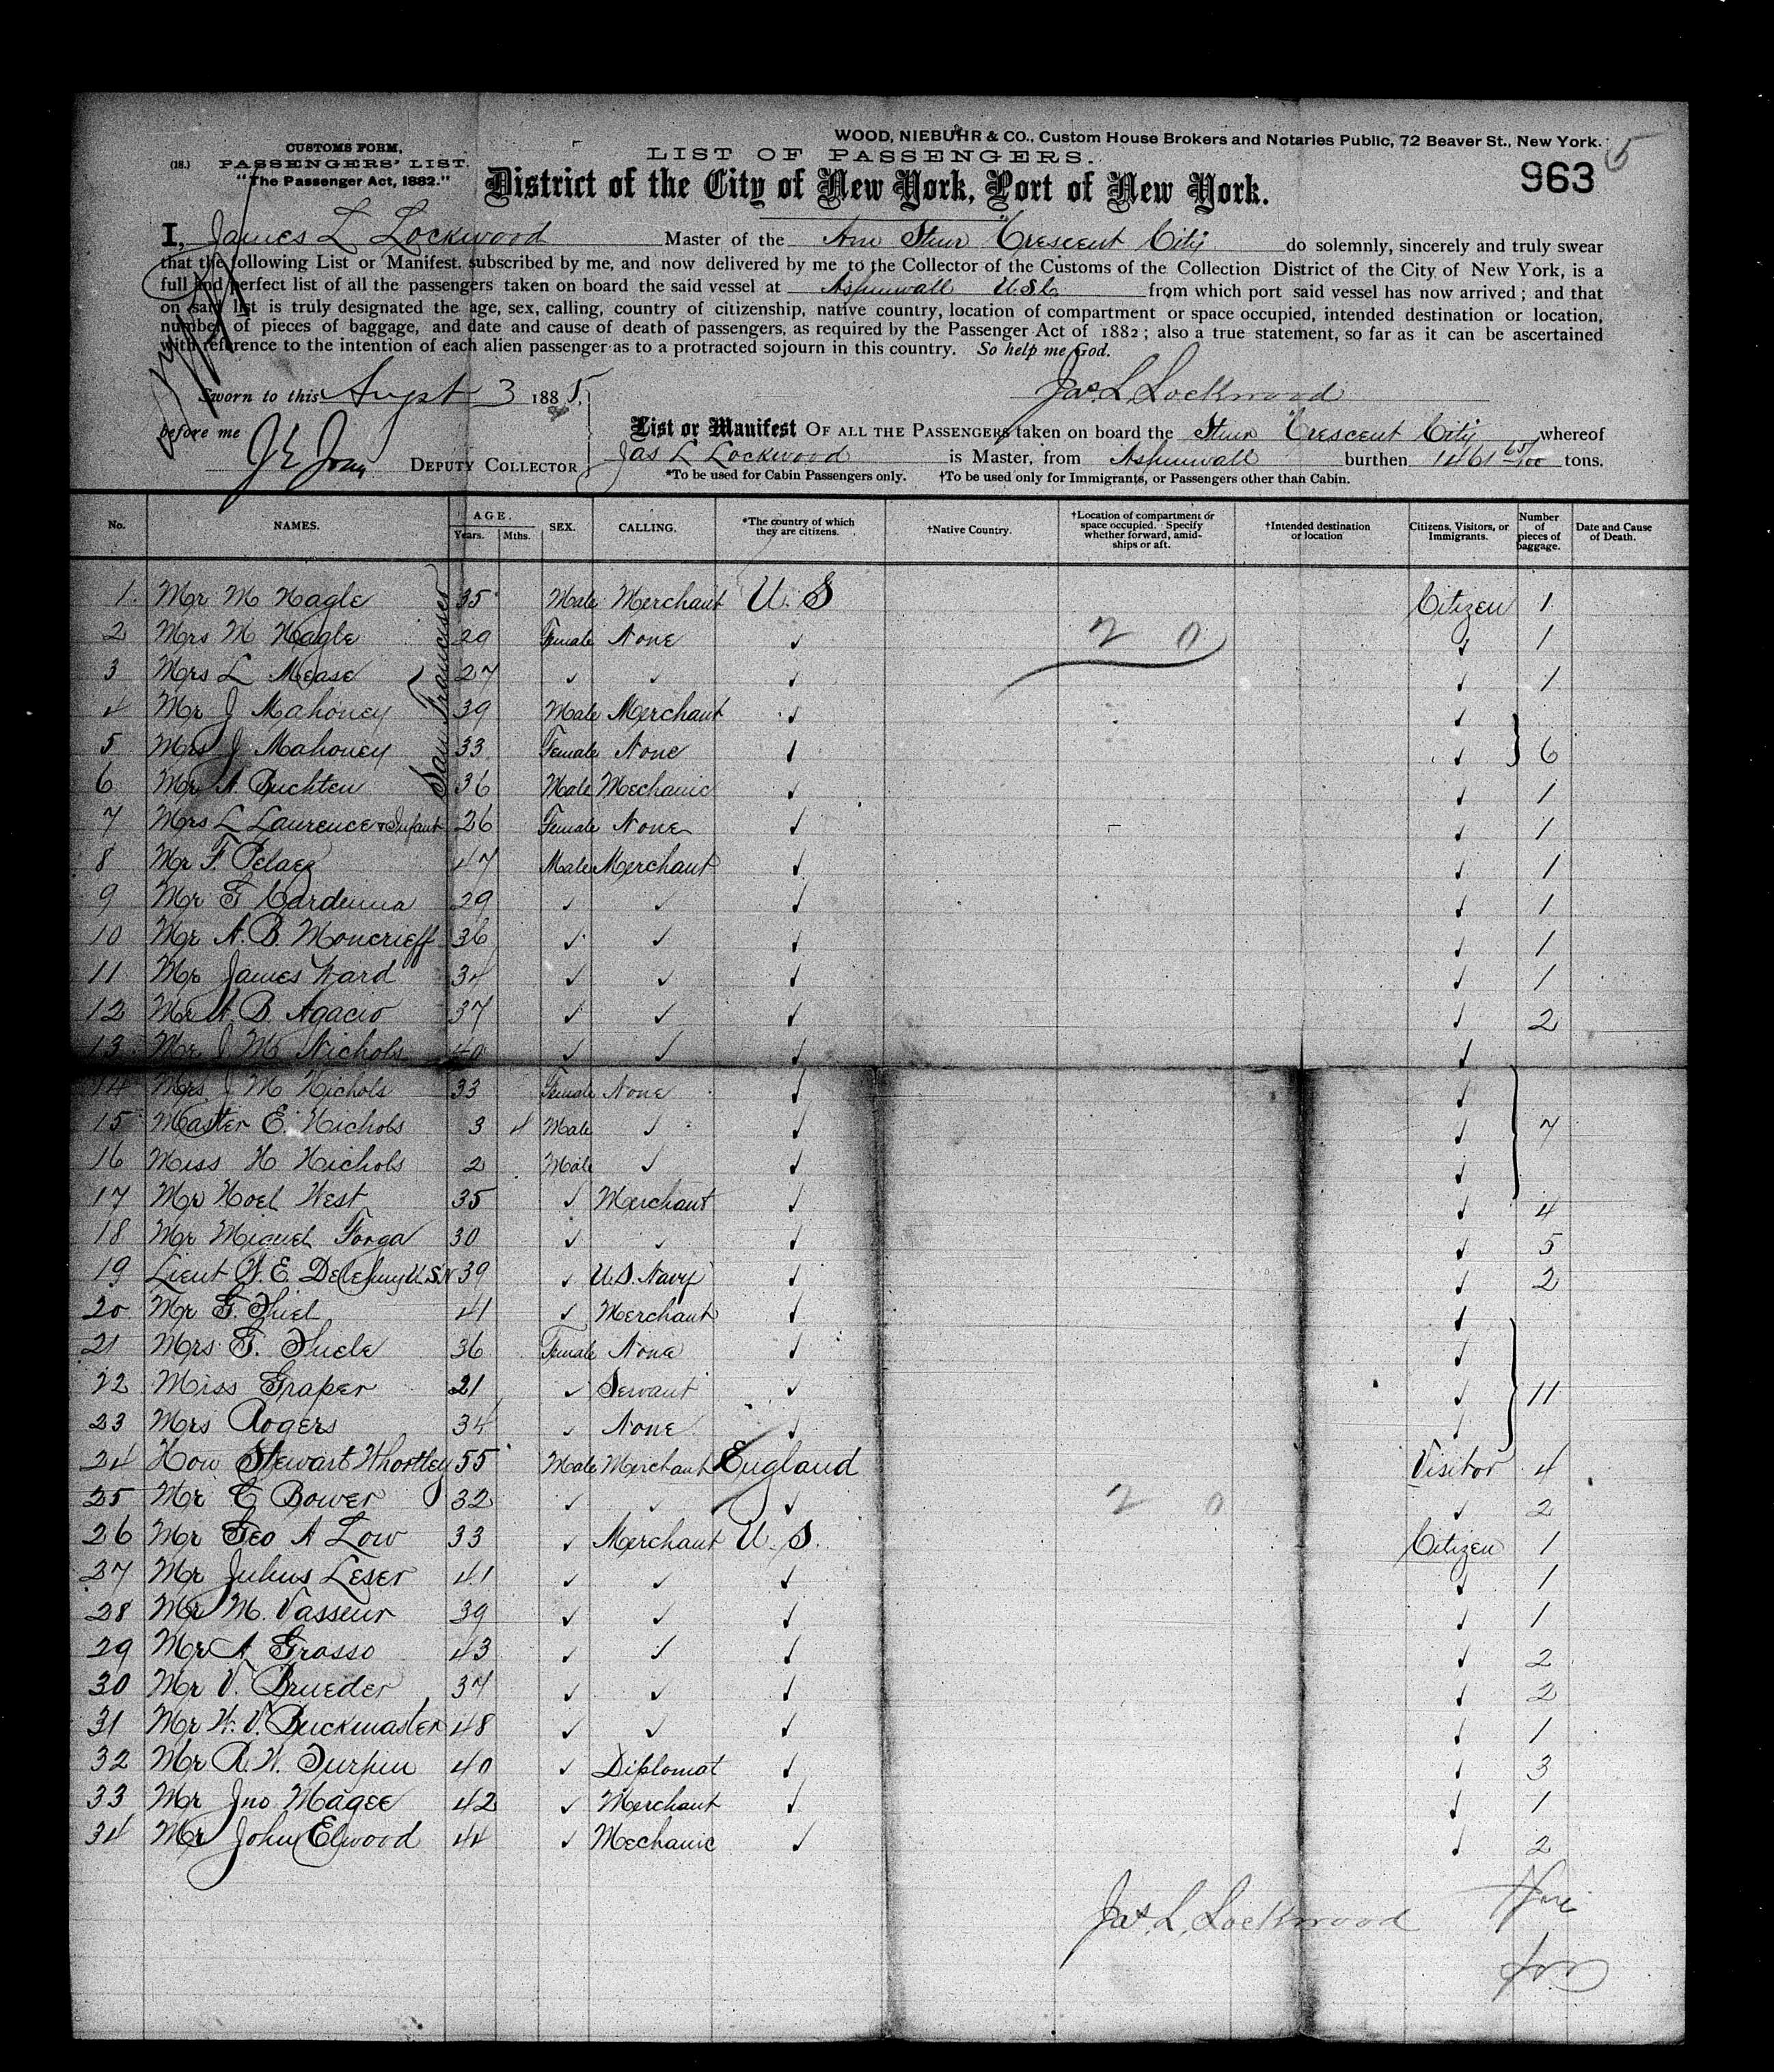 WOOD, NIEBUHR & CO., Custom House Brokers and Notaries Public, 72 Beaver St., New York.
CUSTOMS FORM,
(18.) PASSENGERS' LIST.
"The Passenger Act, 1882."
LIST OF PASSENGERS.
963
5
District of the City of New York, Port of New York.
I, James L Lockwood Master of the Am Stmr Crescent City do solemnly, sincerely and truly swear
that the following List or Manifest, subscribed by me, and now delivered by me to the Collector of the Customs of the Collection District of the City of New York, is a
full and perfect list of all the passengers taken on board the said vessel at Aspinwall U.S.C. from which port said vessel has now arrived; and that
on said list is truly designated the age, sex, calling, country of citizenship, native country, location of compartment or space occupied, intended destination or location,
number of pieces of baggage, and date and cause of death of passengers, as required by the Passenger Act of 1882; also a true statement, so far as it can be ascertained
with reference to the intention of each alien passenger as to a protracted sojourn in this country. So help me God.
Sworn to this Augst 3 1885,
Jas. L. Lockwood
before me
DEPUTY COLLECTOR
List or Manifest OF ALL THE PASSENGERS taken on board the Stmr Crescent City whereof
Jas L Lockwood is Master, from Aspinwall burthen 1461 65/100 tons.
*To be used for Cabin Passengers only. †To be used only for Immigrants, or Passengers other than Cabin.
No. NAMES. AGE. Years. Mths. SEX. CALLING. *The country of which they are citizens. †Native Country. †Location of compartment or space occupied. Specify whether forward, amidships or aft. †Intended destination or location Citizens, Visitors, or Immigrants. Number of pieces of baggage. Date and Cause of Death.
San Francisco
1. Mr M Nagle 35 Male Merchant U. S Citizen 1
2 Mrs M Nagle 29 Female None ✓ 2 0 ✓ 1
3 Mrs L Mease 27 ✓ ✓ ✓ ✓ 1
4 Mr J Mahoney 39 Male Merchant ✓ ✓
5 Mrs J Mahoney 33 Female None ✓ ✓ 6
6 Mr A. Buchten 36 Male Mechanic ✓ ✓ 1
7 Mrs L Laurence & Infant 26 Female None ✓ ✓ 1
8 Mr F. Pelaez 47 Male Merchant ✓ ✓ 1
9 Mr F Cardenna 29 ✓ ✓ ✓ ✓ 1
10 Mr A. B. Moncrieff 36 ✓ ✓ ✓ ✓ 1
11 Mr James Ward 34 ✓ ✓ ✓ ✓ 1
12 Mr A. B. Agacio 37 ✓ ✓ ✓ ✓ 2
13 Mr J M Nichols 40 ✓ ✓ ✓ ✓
14 Mrs J M Nichols 33 Female None ✓ ✓
15 Master E. Nichols 3 4 Male ✓ ✓ ✓ 7
16 Miss H Nichols 2 Male ✓ ✓ ✓
17 Mr Noel West 35 ✓ Merchant ✓ ✓ 4
18 Mr Miguel Forga 30 ✓ ✓ ✓ ✓ 5
19 Lieut W. E. U.S.N 39 ✓ U.S. Navy ✓ ✓ 2
20 Mr F. Thiel 41 ✓ Merchant ✓ ✓
21 Mrs F. Thiele 36 Female None ✓ ✓
22 Miss Graper 21 ✓ Servant ✓ ✓ 11
23 Mrs Rogers 34 ✓ None ✓ ✓
24 Hon Stewart Whortley 55 Male Merchant England Visitor 4
25 Mr C Bower 32 ✓ ✓ ✓ 2 0 ✓ 2
26 Mr Geo A Low 33 ✓ Merchant U. S. Citizen 1
27 Mr Julius Leser 41 ✓ ✓ ✓ ✓ 1
28 Mr M. Vasseur 39 ✓ ✓ ✓ ✓ 1
29 Mr A. Grosso 43 ✓ ✓ ✓ ✓ 2
30 Mr V. Brueder 37 ✓ ✓ ✓ ✓ 2
31 Mr W. V. Buckmaster 48 ✓ ✓ ✓ ✓ 1
32 Mr R. W. Turpin 40 ✓ Diplomat ✓ ✓ 3
33 Mr Jno Magee 42 ✓ Merchant ✓ ✓ 1
34 Mr John Elwood 44 ✓ Mechanic ✓ ✓ 2
Jas. L. Lockwood